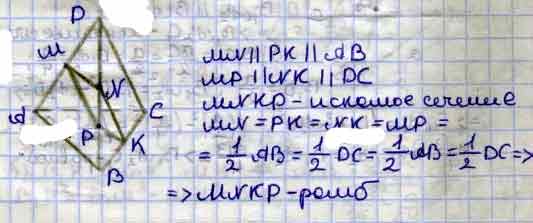 D
M
N
A
C
P
K
B
MN || PK || AB
MP || NK || DC
MNKP - искомое сечение
MN = PK = NK = MP =
= 1/2 AB = 1/2 DC = 1/2 AB = 1/2 DC =>
=> MNKP - ромб